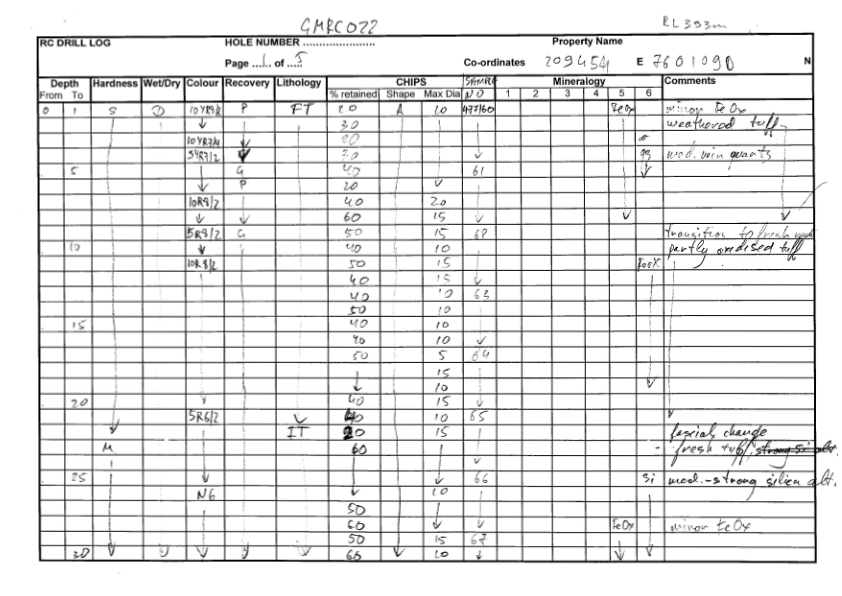 GMRC022 RL393m
RC DRILL LOG HOLE NUMBER ........................ Property Name
Page ...1... of ...5 Co-ordinates 209454 E 7601090 N
Depth Hardness Wet/Dry Colour Recovery Lithology CHIPS SAMPLE Mineralogy Comments
From To % retained Shape Max Dia NO 1 2 3 4 5 6
0 1 S D 10YR8/2 P FT 20 A 20 477160 FeOx minor FeOx
↓ 30 weathered tuff
10YR7/4 20
5YR7/2 30 ↓ qz mod. vein quartz
5 G 40 61 ↓
↓ P 20 ↓
10R8/2 40 20
↓ ↓ 60 15 ↓ ↓ ↓
5R8/2 G 50 15 62 transition to fresh
10 ↓ 40 10 partly oxidised tuff
10R8/2 50 15 FeOX
40 15 ↓
40 10 63
50 10
15 40 10
40 10 ↓
50 5 64
15
↓ 10 ↓
20 ↓ 40 15 ↓
5R6/2 ↓ 40 10 65 ↓
↓ IT 20 15 facial change
M 60 - fresh tuff, strong si alt.
↓
25 ↓ ↓ 66 Si mod.-strong silica alt.
N6 ↓ 10
50
60 ↓ ↓ FeOx minor FeOx
50 15 67
30 ↓ ↓ ↓ ↓ ↓ 60 ↓ 20 ↓ ↓ ↓